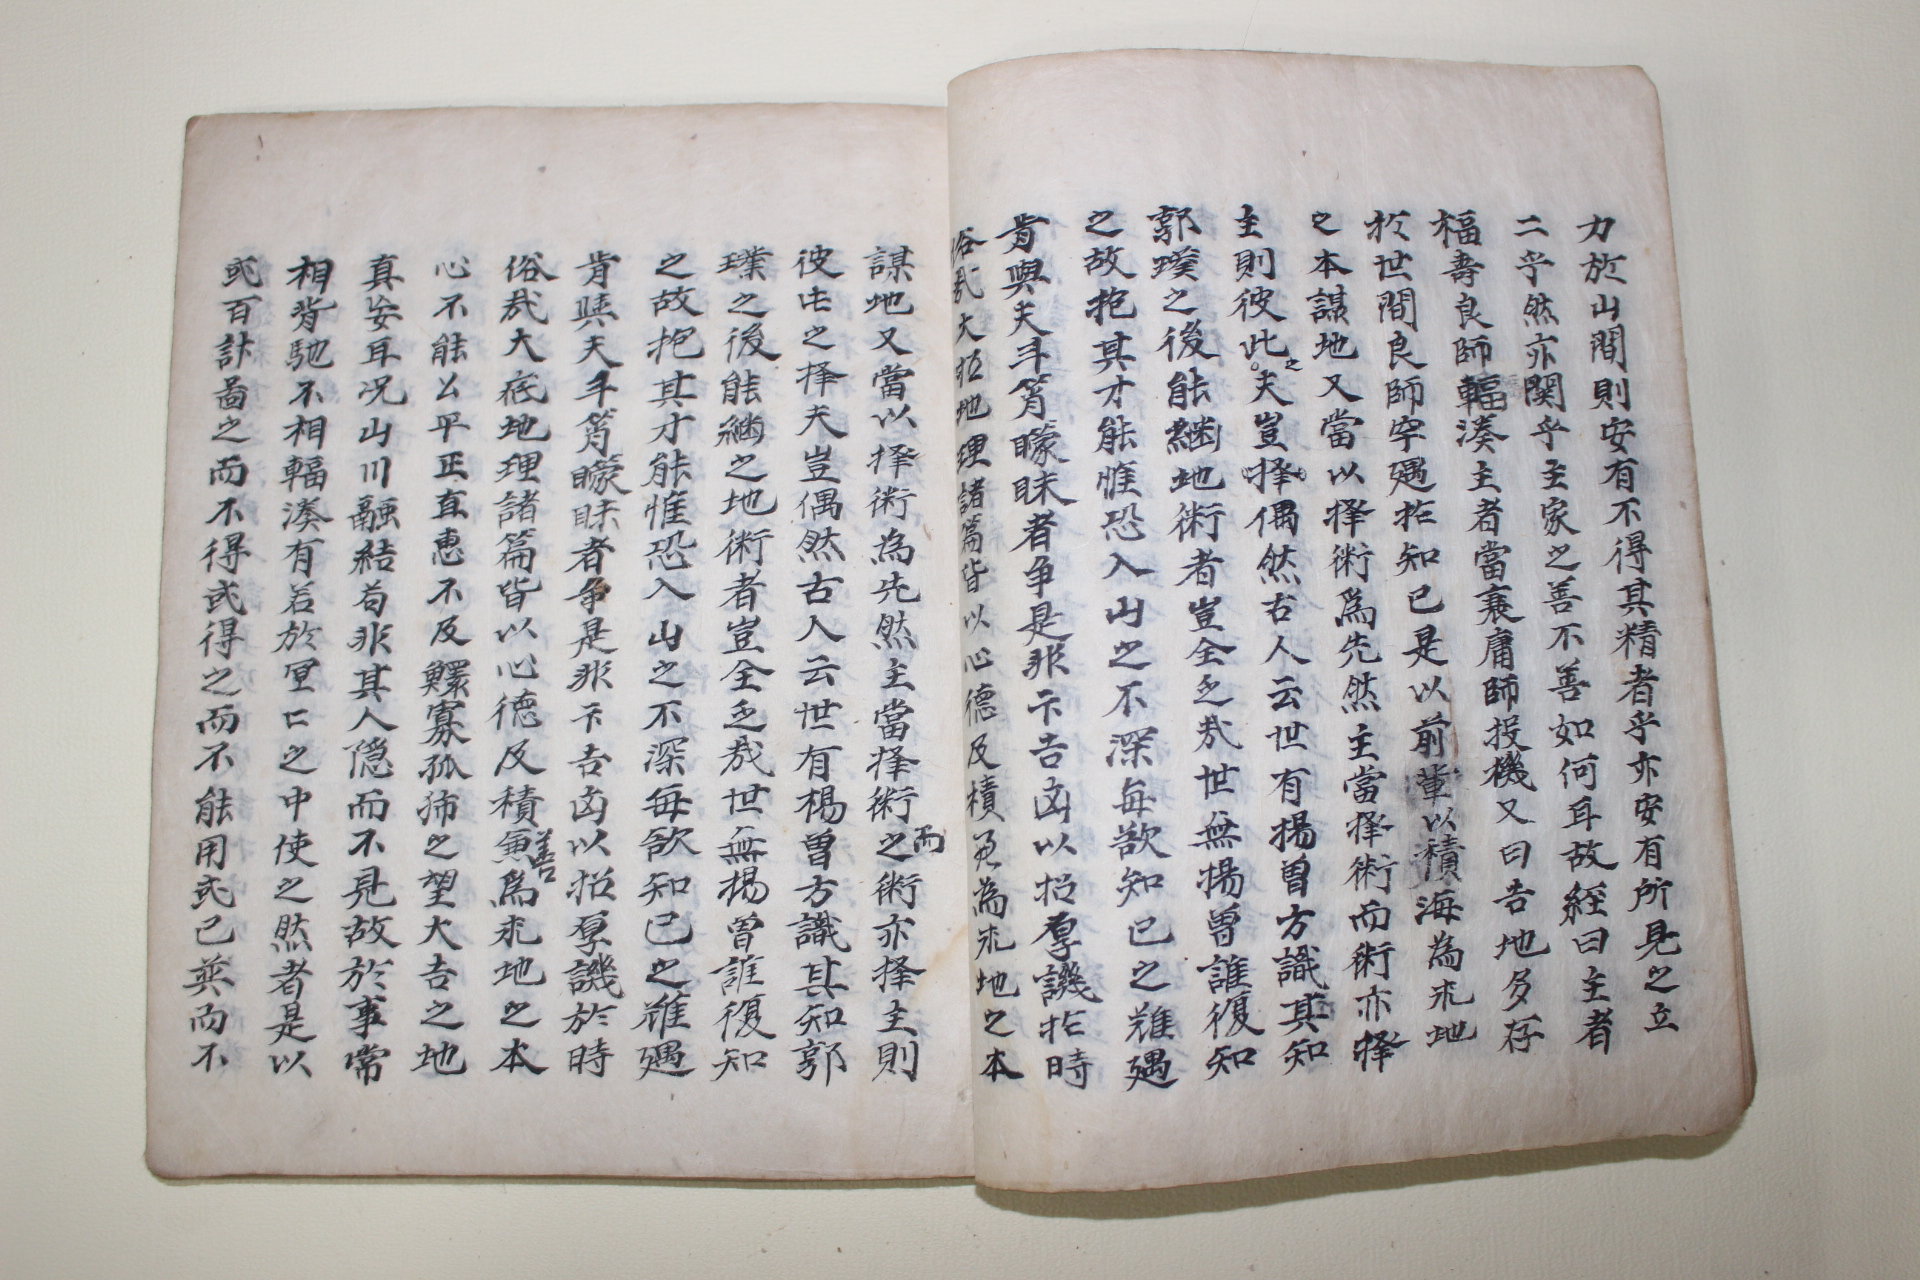 力於山間則安有不得其精者乎亦安有所見之立
二乎然亦関乎主家之善不善如何耳故経曰主者
福壽良師輻湊主者當衰庸師投機又曰吉地多存
於世間良師罕遇於知己是以前軰以積海為求地
之本謀地又當以择術爲先然主當择術而術亦择
主則彼此之夫豈择偶然古人云世有揚曾方識其知
郭璞之後能継地術者豈全乏㢤世無揚曾誰復知
之故抱其才能惟恐入山之不深每欲知已之难遇
肯與夫斗筲矇昧者争是非卞吉凶以招厚譏於時
俗㢤大抵地理諸篇皆以心德及積善為求地之本
謀地又當以择術為先然主當择術之而術亦择主則
彼此之择夫豈偶然古人云世有楊曾方識其知郭
璞之後能継之地術者豈全乏㢤世無楊曾誰復知
之故抱其才能惟恐入山之不深每欲知已之难遇
肯與夫斗筲矇昧者争是非卞吉凶以招厚譏於時
俗㢤大底地理諸篇皆以心德及積善爲求地之本
心不能公平正直惠不及鰥寡孤 之望大吉之地
真妄耳况山川融結苟非其人隐而不見故於事常
相背馳不相輻湊有若於冥亡之中使之然者是以
或百計啚之而不得或得之而不能用或已葬而不